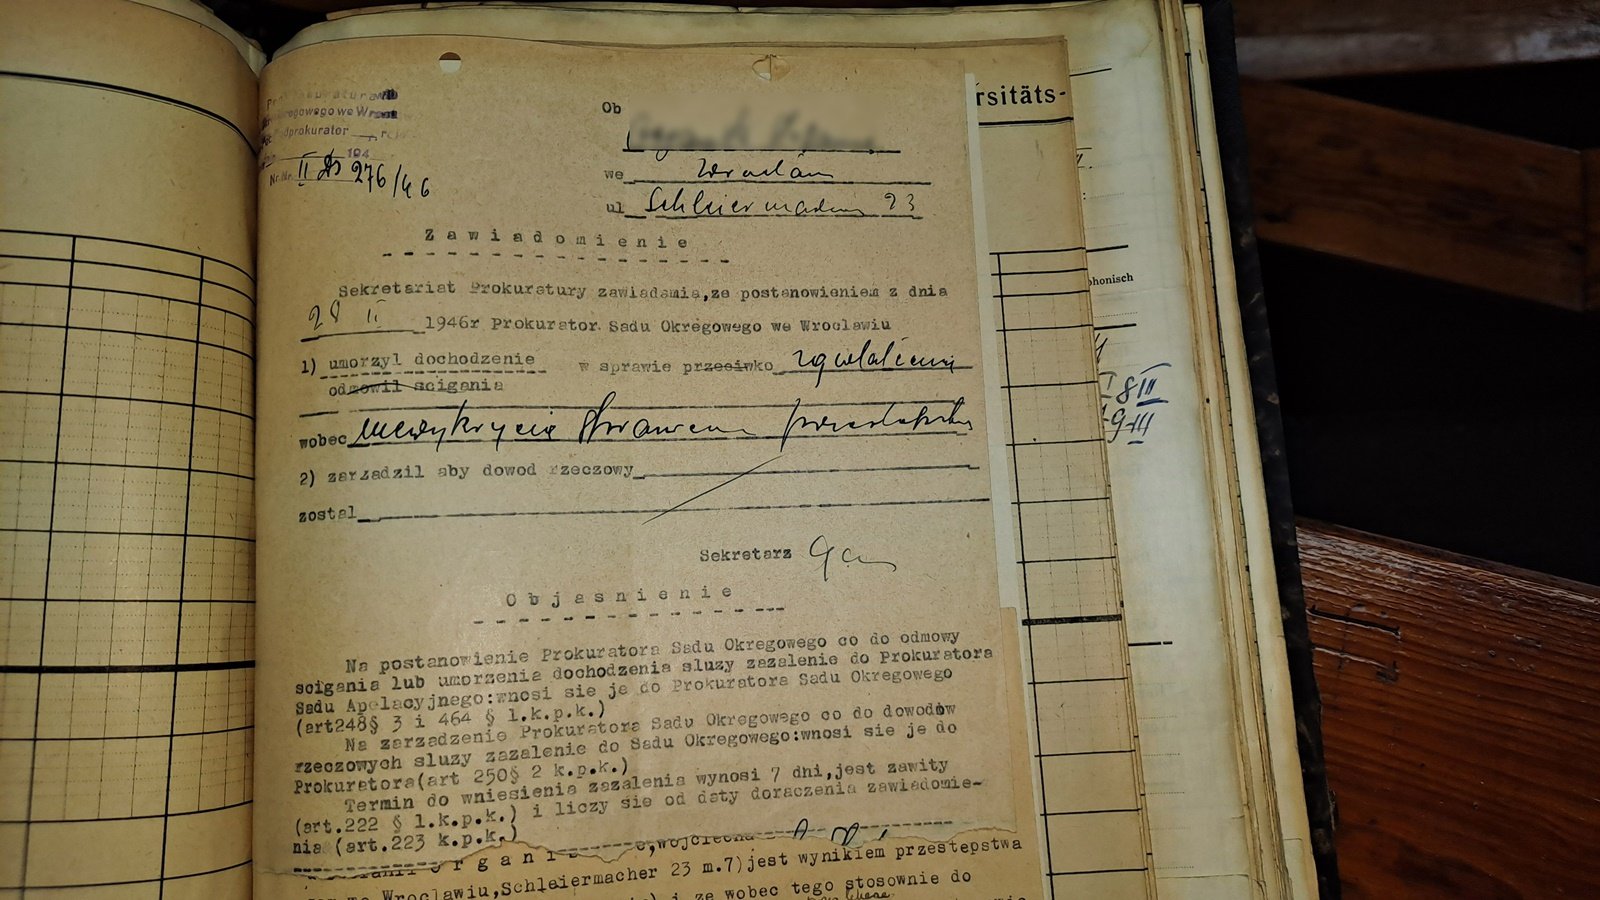 Okregowego we
Podprokurator
194
Nr.Nr. II Ds 276/46
Ob
we Wrocław
ul Schleiermacher 23
Zawiadomienie
Sekretariat Prokuratury zawiadamia,ze postanowieniem z dnia
28 II 1946r Prokurator Sadu Okregowego we Wroclawiu
1) umorzyl dochodzenie w sprawie przeciwko zgwałcenia
odmowil scigania
wobec niewykrycia sprawców przestępstwa
2) zarzadzil aby dowod rzeczowy
zostal
Sekretarz
Objasnienie
Na postanowienie Prokuratora Sadu Okregowego co do odmowy
scigania lub umorzenia dochodzenia sluzy zazalenie do Prokuratora
Sadu Apelacyjnego:wnosi sie je do Prokuratora Sadu Okregowego
(art248§ 3 i 464 § 1.k.p.k.)
Na zarzadzenie Prokuratora Sadu Okregowego co do dowodów
rzeczowych sluzy zazalenie do Sadu Okregowego:wnosi sie je do
Prokuratora(art 250§ 2 k.p.k.)
Termin do wniesienia zazalenia wynosi 7 dni,jest zawity
(art.222 § 1.k.p.k.) i liczy sie od daty doraczenia zawiadomie-
nia (art.223 k.p.k.)
Wroclawiu,Schleiermacher 23 m.7)jest wynikiem przestepstwa
i ze wobec tego stosownie do
rsitäts-
phonisch
8 II
9 III